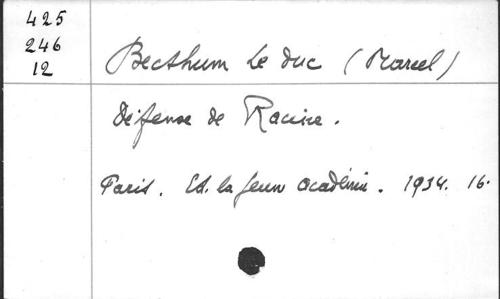 425
246
12
Becthum Le Duc (Marcel)
Défense de Racine.
Paris. Ed. la jeun académie. 1934. 16.